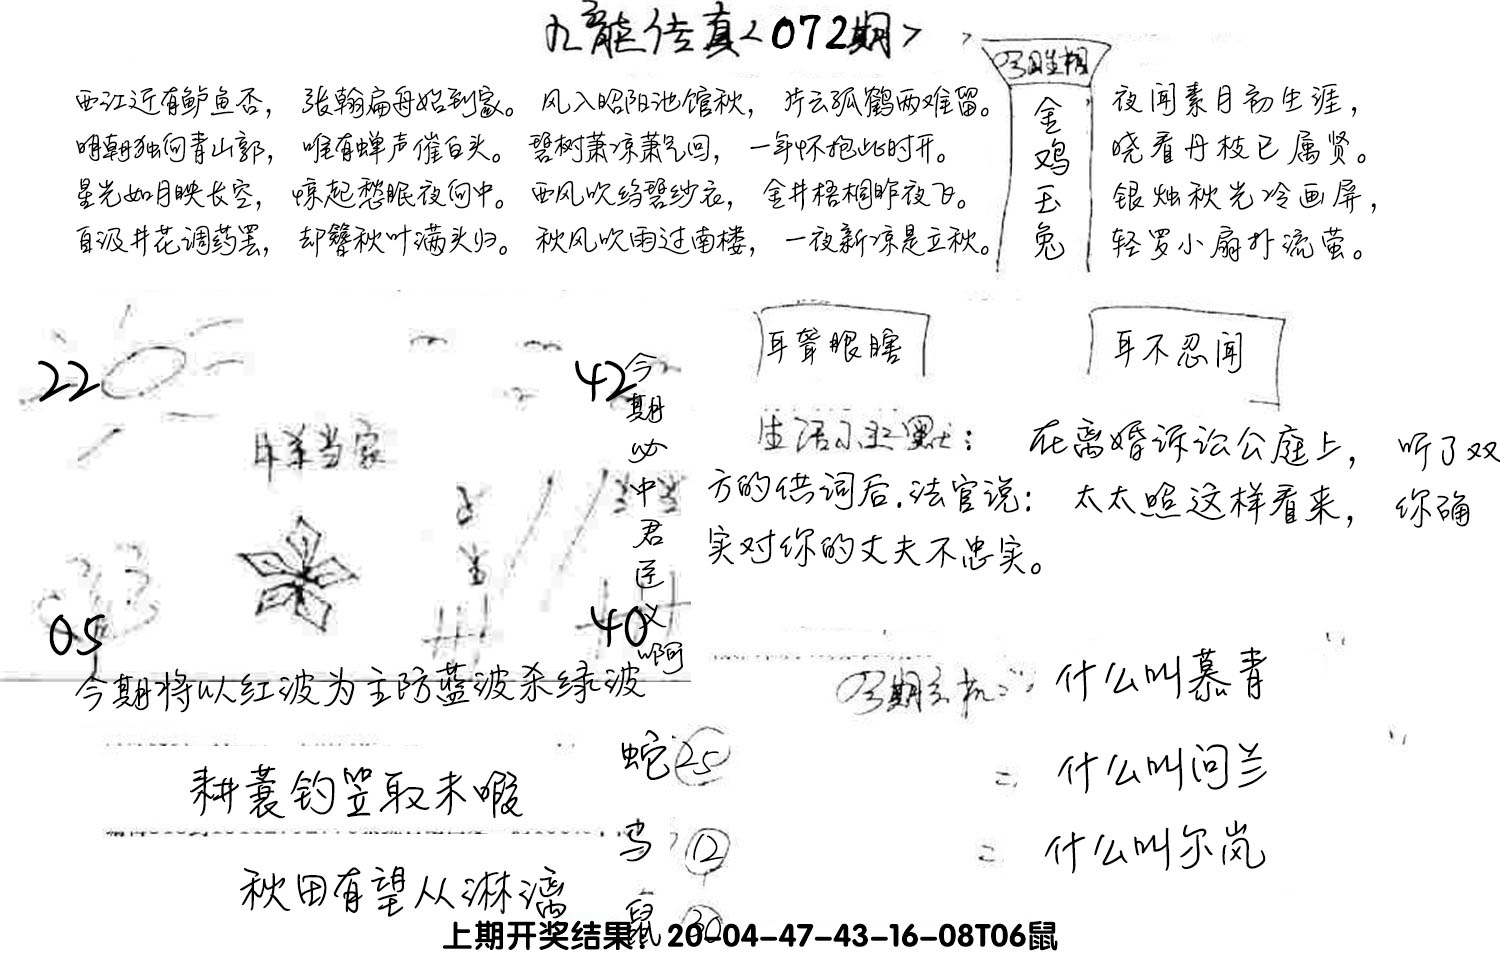 九龙传真<072期>
今日生相
金鸡玉兔
西江近有鲈鱼否，张翰扁舟始到家。风入昭阳池馆秋，片云孤鹤两难留。
明朝独向青山郭，唯有蝉声催白头。碧树萧凉萧气回，一年怀抱此时开。
星光如月映长空，惊起愁眠夜向中。西风吹绉碧纱衣，金井梧桐昨夜飞。
自汲井花调药罢，却簪秋叶满头归。秋风吹雨过南楼，一夜新凉是立秋。
夜闻素月初生涯，
晓看丹枝已属贤。
银烛秋光冷画屏，
轻罗小扇扑流萤。
22
42
今期必中君臣义啊
当家
05
40
今期将以红波为主防蓝波杀绿波
耳聋眼瞎
耳不忍闻
生活小幽默：在离婚诉讼公庭上，听了双
方的供词后.法官说：太太照这样看来，你确
实对你的丈夫不忠实。
今期玄机：什么叫慕青
什么叫问兰
什么叫尔岚
耕蓑钓笠取未暇
秋田有望从淋漓
蛇 25
鸡 12
鼠 30
上期开奖结果：20-04-47-43-16-08T06鼠